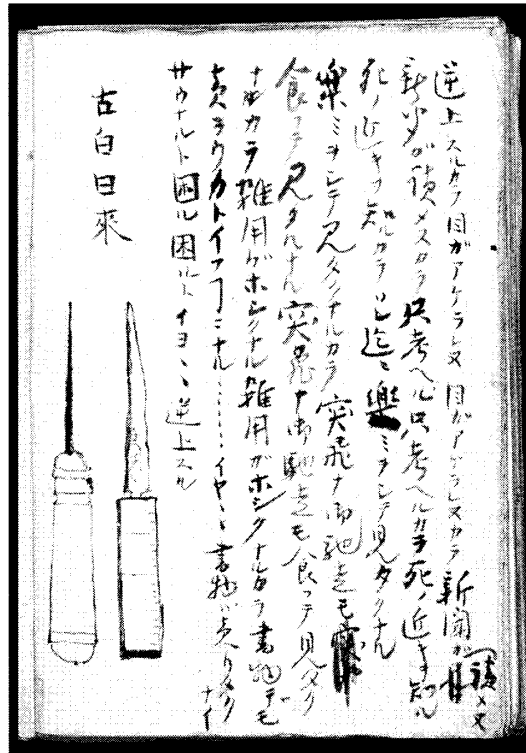 逆上スルカラ目ガアケラレヌ 目ガアケラレヌカラ新聞ガ讀メヌ
新聞ガ讀メヌカラ只考ヘル只考ヘルカラ死ノ近キヲ知ル
死ノ近キヲ知ルカラソレ迄ニ樂ミヲシテ見タクナル
樂ミヲシテ見タクナルカラ突飛ナ御馳走モ
食フテ見タクナル 突飛ナ御馳走モ食フテ見タク
ナルカラ雑用ガホシクナル雑用ガホシクナルカラ書物デモ
賣ラウカトイフヿニナル……イヤ〻〻書物ハ売リタクナイ
サウナルト困ル困ルトイヨ〻〻逆上スル
古白曰來